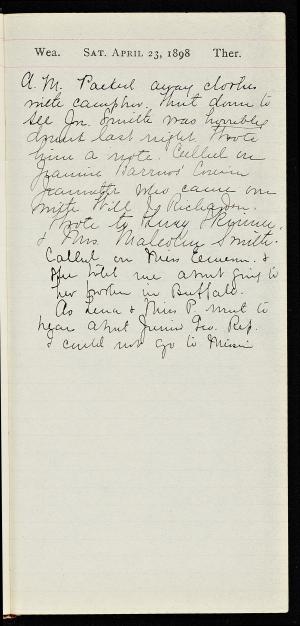 Wea. SAT. APRIL 23, 1898 Ther.
A.M. Packed away clothes
with camphor. Went down to
see Jn. Smith was horribly
drunk last night. Wrote
him a note. Called on
Jeannie Barrows' Cousin
Jeannette who came on
with Will J. Richardson.
Wrote to
& Mrs. Malcolm Smith.
Called on Miss &
she told me about going to
her brother in Buffalo.
As Lena & Miss P. went to
hear about Junior Geo. Rep.
I could not go to